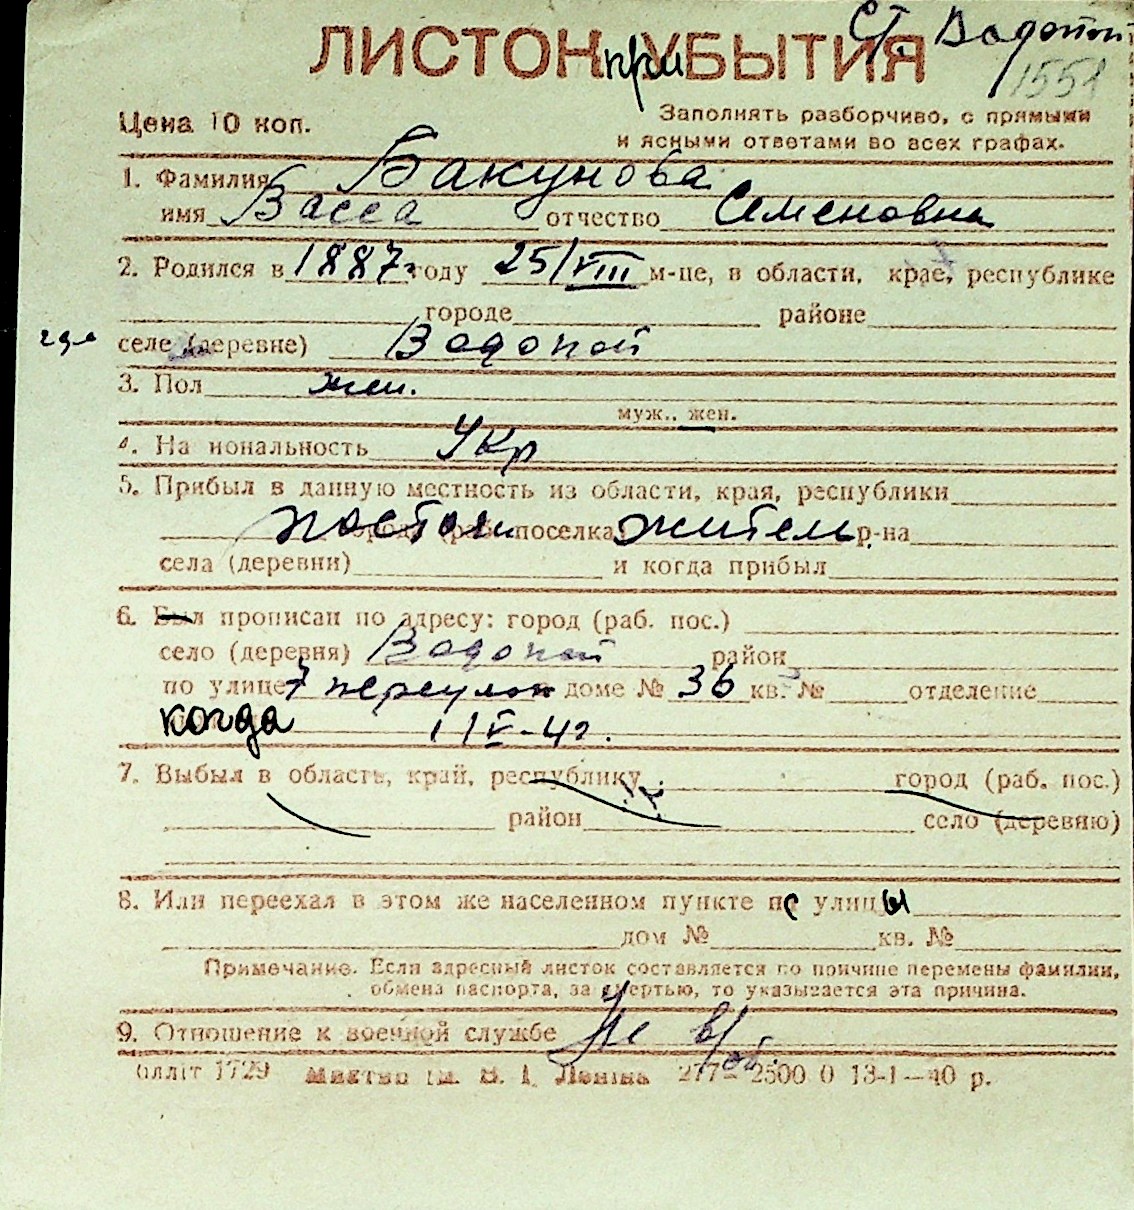 Ст. Водопой
ЛИСТОК приУБЫТИЯ
1551
Цена 10 коп.
Заполнять разборчиво, с прямыми
и ясными ответами во всех графах.
1. Фамилия Бакунова
имя Васса отчество Семеновна
2. Родился в 1887 году 25/VIII м-це, в области, крае, республике
городе районе
где селе (деревне) Водопой
3. Пол жен.
муж., жен.
4. На иональность Укр
5. Прибыл в данную местность из области, края, республики
постоян. поселка житель р-на
села (деревни) и когда прибыл
6. Был прописан по адресу: город (раб. пос.)
село (деревня) Водопой район
по улице 7 переулок доме № 36 кв. № отделение
когда 1 IV-42.
7. Выбыл в область, край, республику город (раб. пос.)
район село (деревню)
8. Или переехал в этом же населенном пункте пс улицы
дом № кв. №
Примечание. Если адресный листок составляется по причине перемены фамилии,
обмена паспорта, за смертью, то указывается эта причина.
9. Отношение к военной службе Не в/об.
1729 277—2500 0 13-1—40 р.